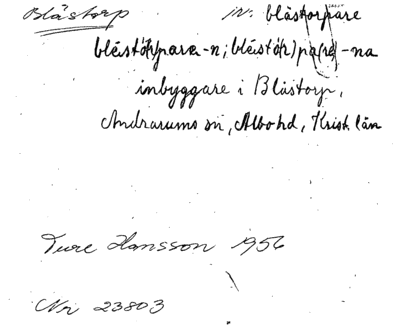 Blåstorp inv. blåstorpare
blåstå(r)para-n; blåstå(r)pa(re)-na
inbyggare i Blåstorp,
Andrarums sn, Albo hd, Krist. län
Ture Hansson 1956
Nr 23803